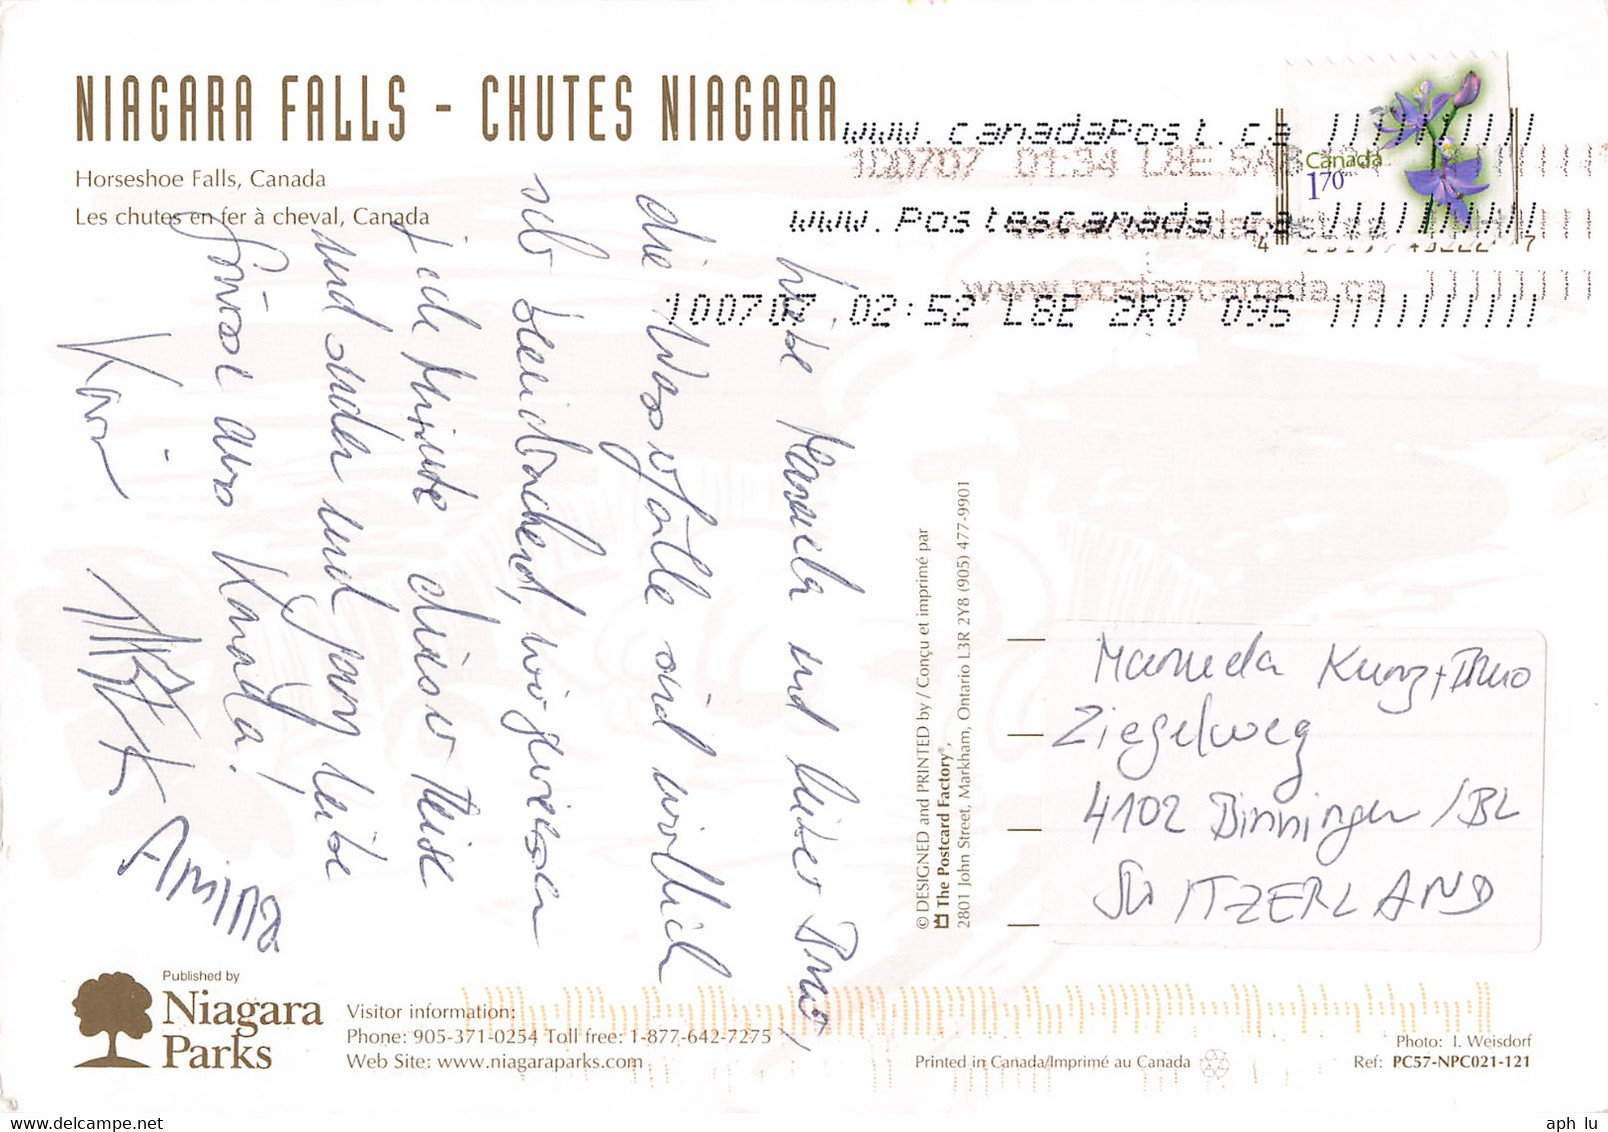 NIAGARA FALLS - CHUTES NIAGARA
Horseshoe Falls, Canada
Les chutes en fer à cheval, Canada
www.canadapost.ca
100707 01:34 L8E
www.postescanada.ca
www.postescanada.ca
100707 02:52 L8E 2R0 095
Canada
1.70
Liebe Manuela und lieber Bruno,
die Wasserfälle sind wirklich
sehr beeindruckend, wir geniessen
jede Minute dieser Reise
und senden euch ganz liebe
Grüsse aus Kanada!
Karin
Amina
© DESIGNED and PRINTED by / Conçu et imprimé par
The Postcard Factory®,
2801 John Street, Markham, Ontario L3R 2Y8 (905) 477-9901
Manuela Kunz + Bruno
Ziegelweg
4102 Binningen /BL
SWITZERLAND
Published by
Niagara
Parks
Visitor information:
Phone: 905-371-0254 Toll free: 1-877-642-7275
Web Site: www.niagaraparks.com
Printed in Canada/Imprimé au Canada
Photo: I. Weisdorf
Ref: PC57-NPC021-121
aph lu